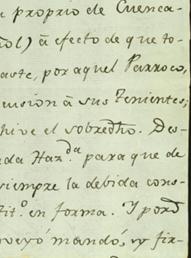 a proprio de Cuenca=
ñol) â efecto de que to-
aste, por aquel Parroco,
cusion â sus Tenientes;
hive el sobredho. Des-
ada Haz.da para que de
siempre la debida cons-
tit.o en forma. Y por
oveyó mandó, y fir-